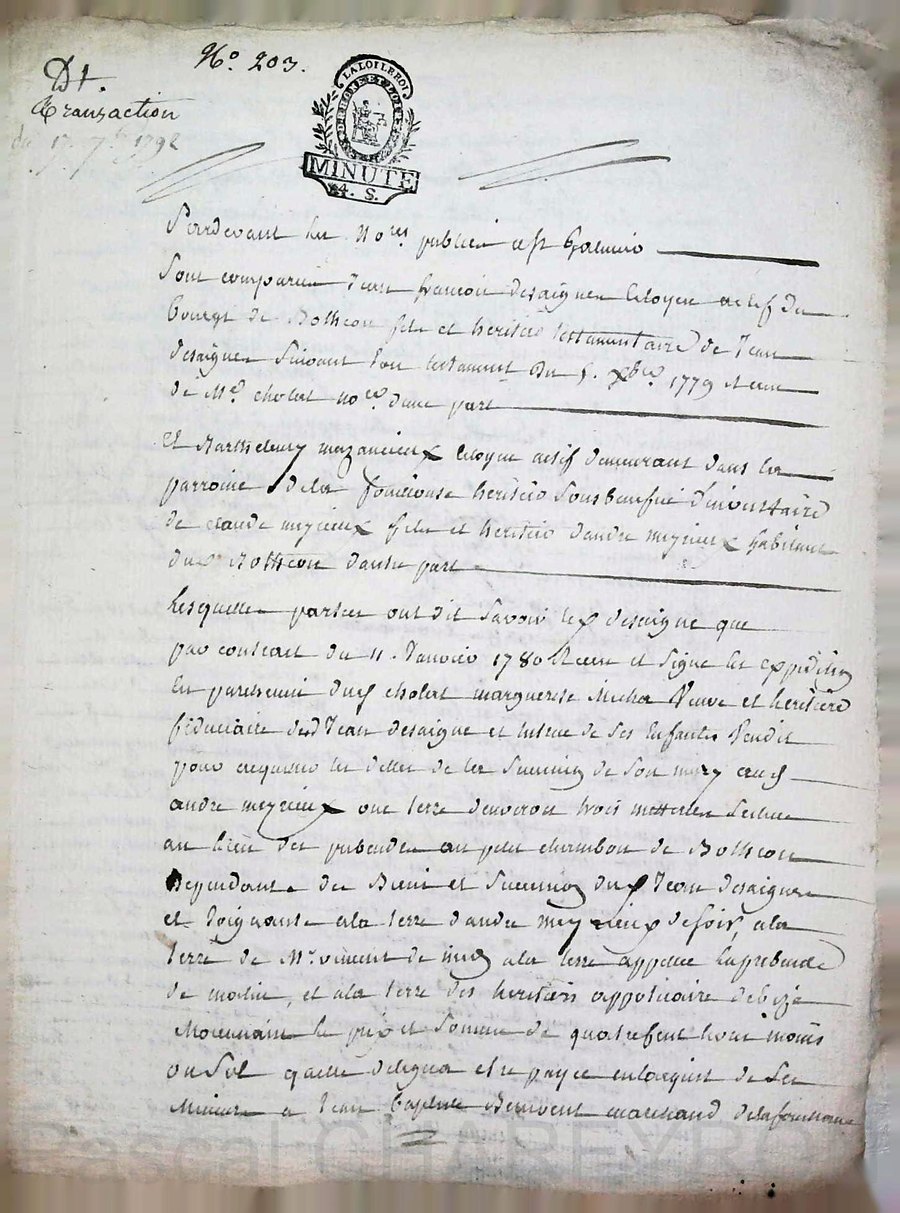 No. 203.
Dt.
Transaction
du 17. 7bre 1792
LA LOI LE ROI
MINUTE
4. S.
Pardevant les Nores publics
Sont comparus Jean françois desaignes Citoyen actif du
Bourgt de Bothéon fils et heritier testamentaire de Jean
desaignes Suivant Son testament Du 5. Xbre 1779 Recu
de Me. cholat nore. d'une part
Et Barthelemy mezancieux Citoyen actif demeurant dans la
parroisse dela fouillouse heritier Sous benefice d'inventaire
de claude meyrieux fils et heritier d'andré meyrieux habitant
du Bothéon d'autre part
Lesquelles parties ont dit Savoir led desaigne que
par contract du 11. Janvier 1780 Recu et Signé les expedition
En parchemin dud cholat marguerite Micha Veuve et heritiere
fiduciaire de Jean desaigne et tutrice de Ses Enfants Vendit
pour acquiter les dettes de la Succession de Son mary aud
andré meyrieux une terre d'environ trois metterées Scituée
au lieu des prebendes au petit chambon de Bothéon
Dependante des Biens et Succession dud Jean desaignes
et Joignante ala terre d'andré meyrieux de soir, ala
terre de Mr. vincent de ala terre appellée la prebende
de matin, et ala terre des heritiers appoticaire de bize
Moyennant le prix et Somme de quatre cent huit moins
un Sol qu'elle delegua etre payée en l'acquit de Ses
Mineurs a Jean Baptiste marchand dela fouillouse
Pascal CHAREYRON